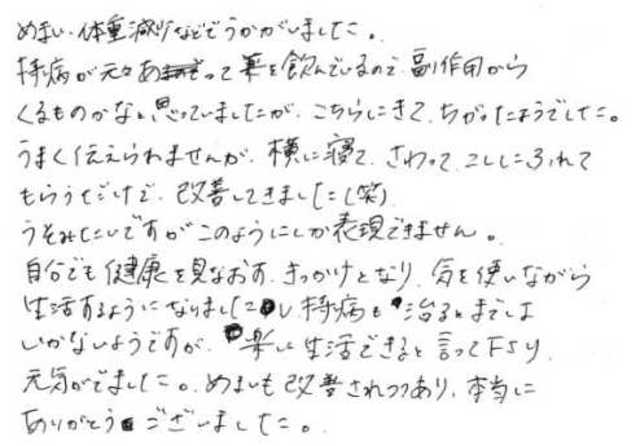 めまい・体重減少などでうかがいました。
持病が元々あって薬を飲んでいるので、副作用から
くるものかなと思っていましたが、こちらにきて、ちがったようでした。
うまく伝えられませんが、横に寝て、さわって、こしにふれて
もらうだけで、改善してきました(笑)
うそみたいですがこのようにしか表現できません。
自分でも健康を見なおす、きっかけとなり、気を使いながら
生活するようになりましたし、持病も治るとまでは
いかないようですが、楽に生活できると言って下さり、
元気がでました。めまいも改善されつつあり、本当に
ありがとうございました。